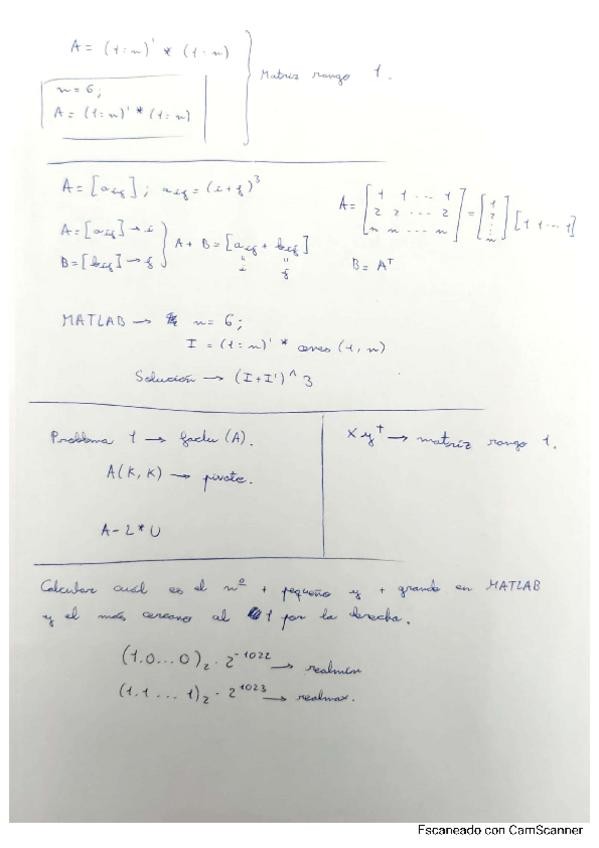 A = (1:n)' * (1:n)
n = 6;
A = (1:n)' * (1:n)
Matriz rango 1.
A = [aij]; aij = (i+j)^3
A = [aij] → i
B = [bij] → j
A + B = [aij + bij]
" "
i j
A = [1 1 ... 1; 2 2 ... 2; n n ... n] = [1; 2; ⋮; n] [1 1 ... 1]
B = A^T
MATLAB → n = 6;
I = (1:n)' * ones(1,n)
Solución → (I+I')^3
Problema 1 → faclu(A).
A(K,K) → pivote.
A-L*U
xy^T → matriz rango 1.
Calcular cuál es el nº + pequeño y + grande en MATLAB
y el más cercano al 1 por la derecha.
(1.0...0)₂ · 2^-1022 → realmin
(1.1...1)₂ · 2^1023 → realmax.
Escaneado con CamScanner